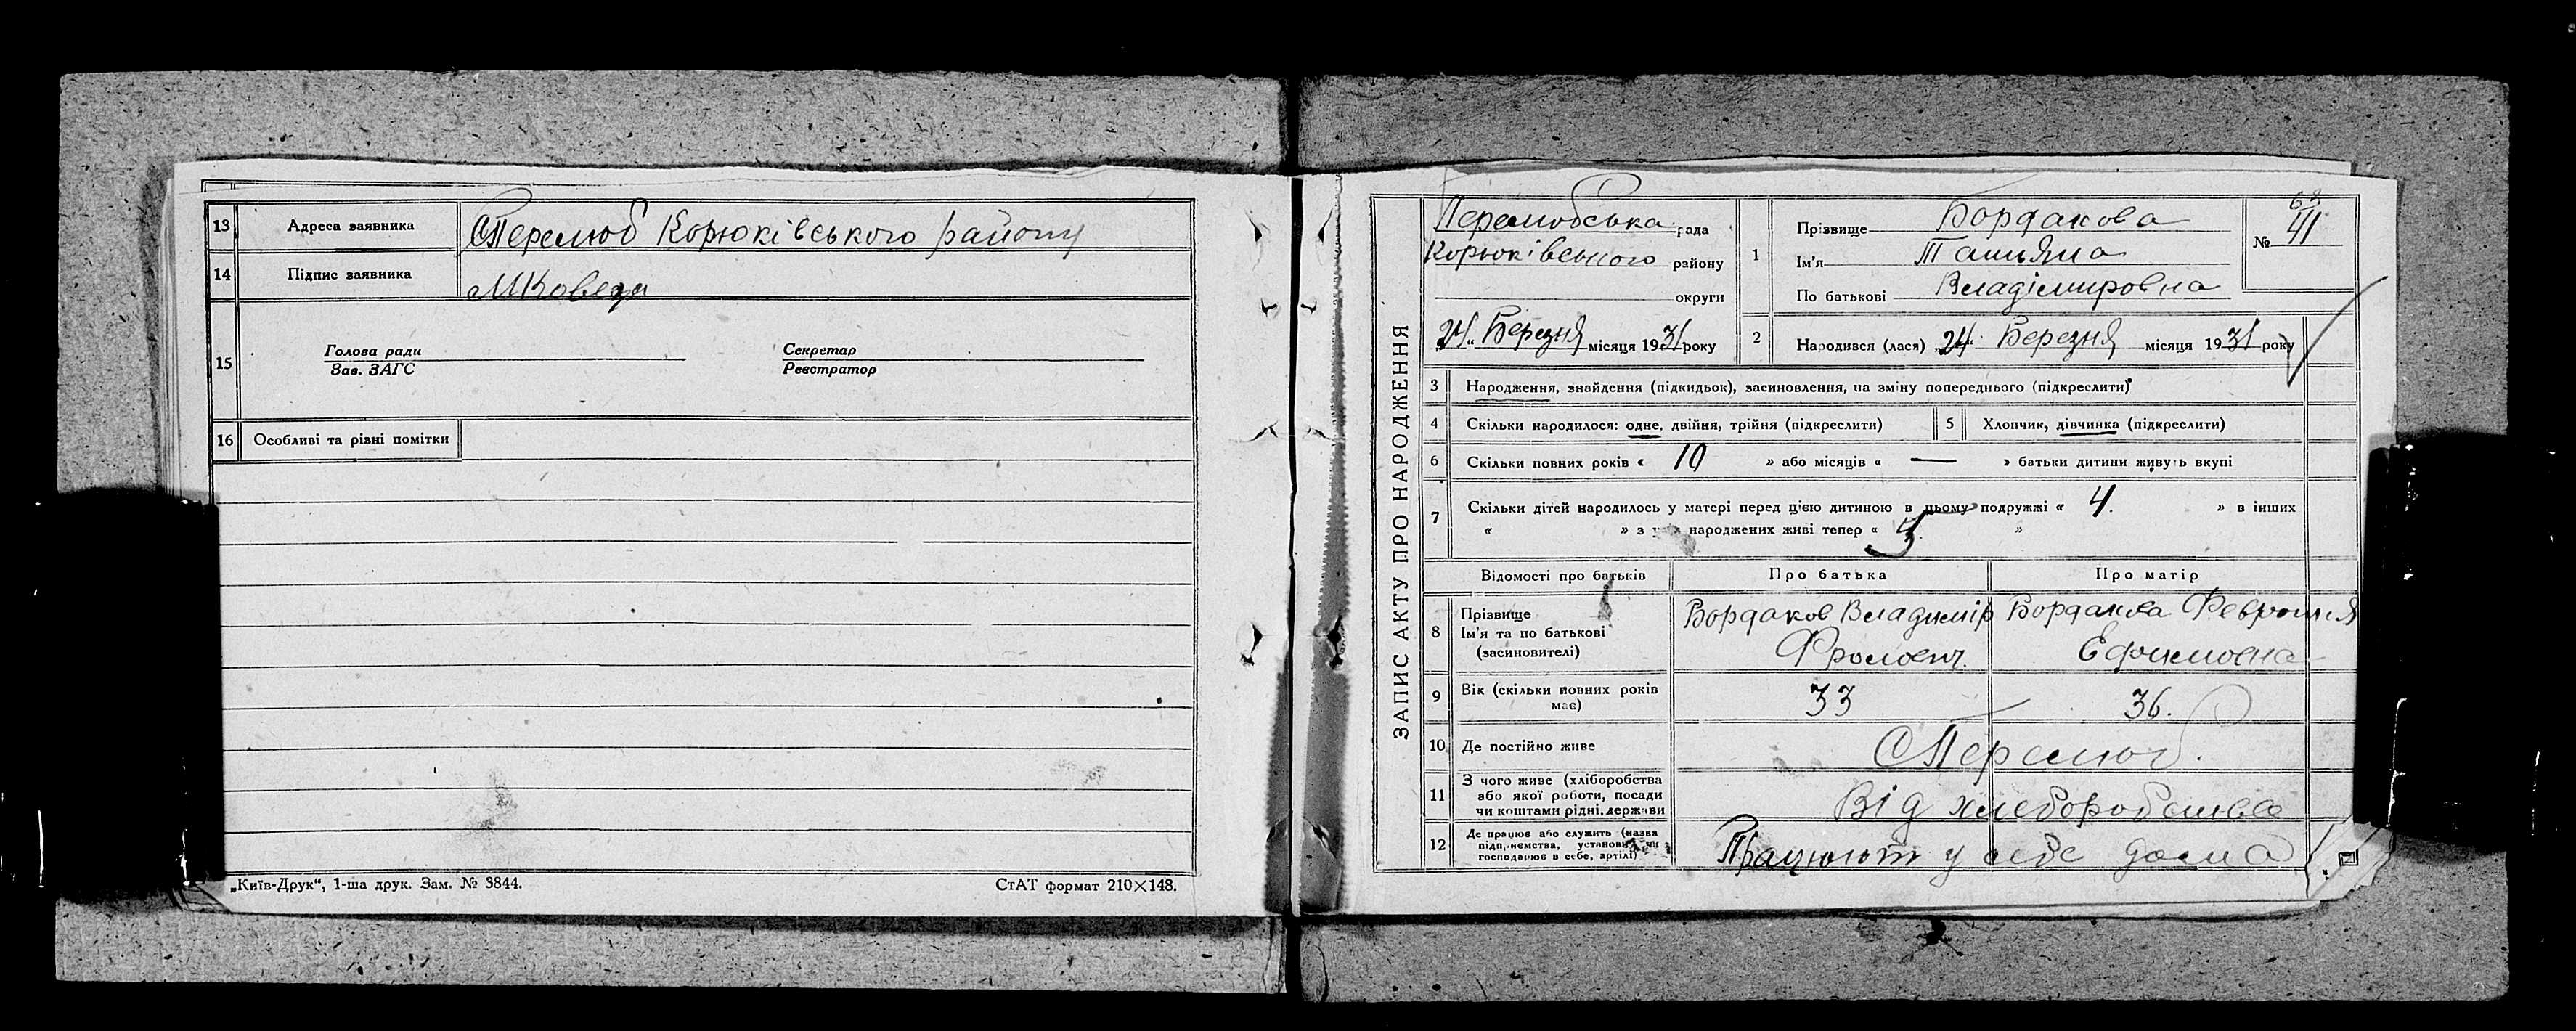 13 Адреса заявника С Перелюб Корюківського району
14 Підпис заявника МКовеза
15 Голова ради Секретар
Зав. ЗАГС Реєстратор
16 Особливі та різні помітки
„Київ-Друк“, 1-ша друк. Зам. № 3844. СтАТ формат 210×148.
ЗАПИС АКТУ ПРО НАРОДЖЕННЯ
Перелюбська рада
Корюківського району
округи
24 „ Березня місяця 1931 року
1 Прізвище Бордакова
Ім'я Татьяна
По батькові Владімировна
62
№ 41
2 Народився (лася) „24“ Березня місяця 1931 року
3 Народження, знайдення (підкидьок), засиновлення, на зміну попереднього (підкреслити)
4 Скільки народилося: одне, двійня, трійня (підкреслити) 5 Хлопчик, дівчинка (підкреслити)
6 Скільки повних років « 10 » або місяців « — » батьки дитини живуть вкупі
7 Скільки дітей народилось у матері перед цією дитиною в цьому подружжі « 4. » в інших
« » з народжених живі тепер « 5 »
Відомості про батьків Про батька Про матір
8 Прізвище
Ім'я та по батькові
(засиновителі)
Бордаков Владимір
Фролович.
Бордакова Февронія
Ефимовна
9 Вік (скільки повних років
має)
33 36.
10 Де постійно живе С Перелюб.
11 З чого живе (хліборобства
або якої роботи, посади
чи коштами рідні, держави
Від хлеборобства
12 Де працює або служить (назва
підприємства, установи чи
господарює в себе, артілі)
Працюють у себе дома